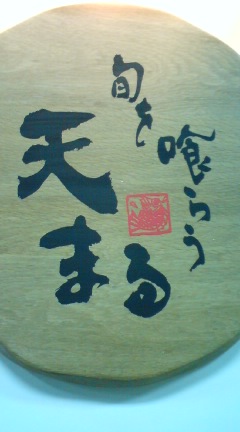 旬を喰らう
天まる